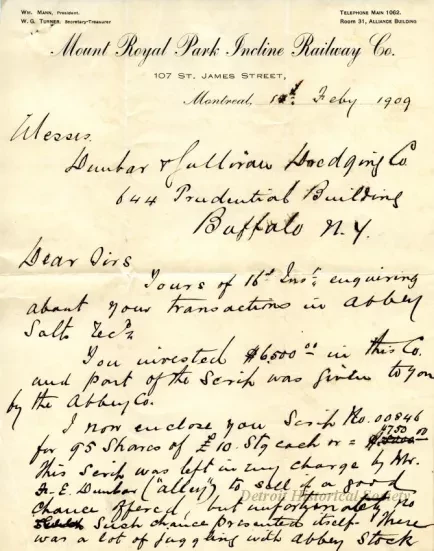 Wm. Mann, President.
W. G. Turner. Secretary-Treasurer
Telephone Main 1062.
Room 31, Alliance Building
Mount Royal Park Incline Railway Co.
107 St. James Street,
Montreal, Feby 1909
Messrs.
Dunbar & Sullivan Dredging Co
644 Prudential Building
Buffalo N.Y.
Dear Sirs
Yours of 16th Inst, enquiring
about your transactions in Abbey
Salts
You invested $6500 00 in this Co.
and part of the Scrip was given to you
by the Abbey Co.
I now enclose you Scrip No. 00846
for 95 Shares of £10. Stg each or = $4750 00
This Scrip was left in my charge by Mr.
E. Dunbar ("alley") to sell if a good
chance offered, but unfortunately no
Such chance presented itself. There
was a lot of juggling with Abbey Stock
Detroit Historical Society